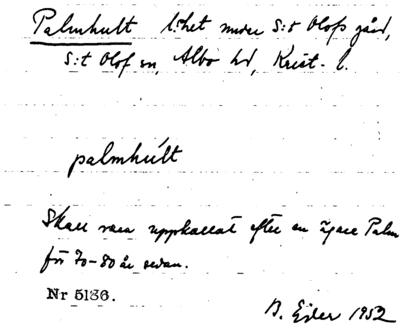 Palmhult l:het under S:t Olofs gård,
S:t Olof sn, Albo hd, Krist. l.
palmhúlt
Skall vara uppkallat efter en ägare Palm
för 70-80 år sedan.
Nr 5136.
B. Ejder 1952